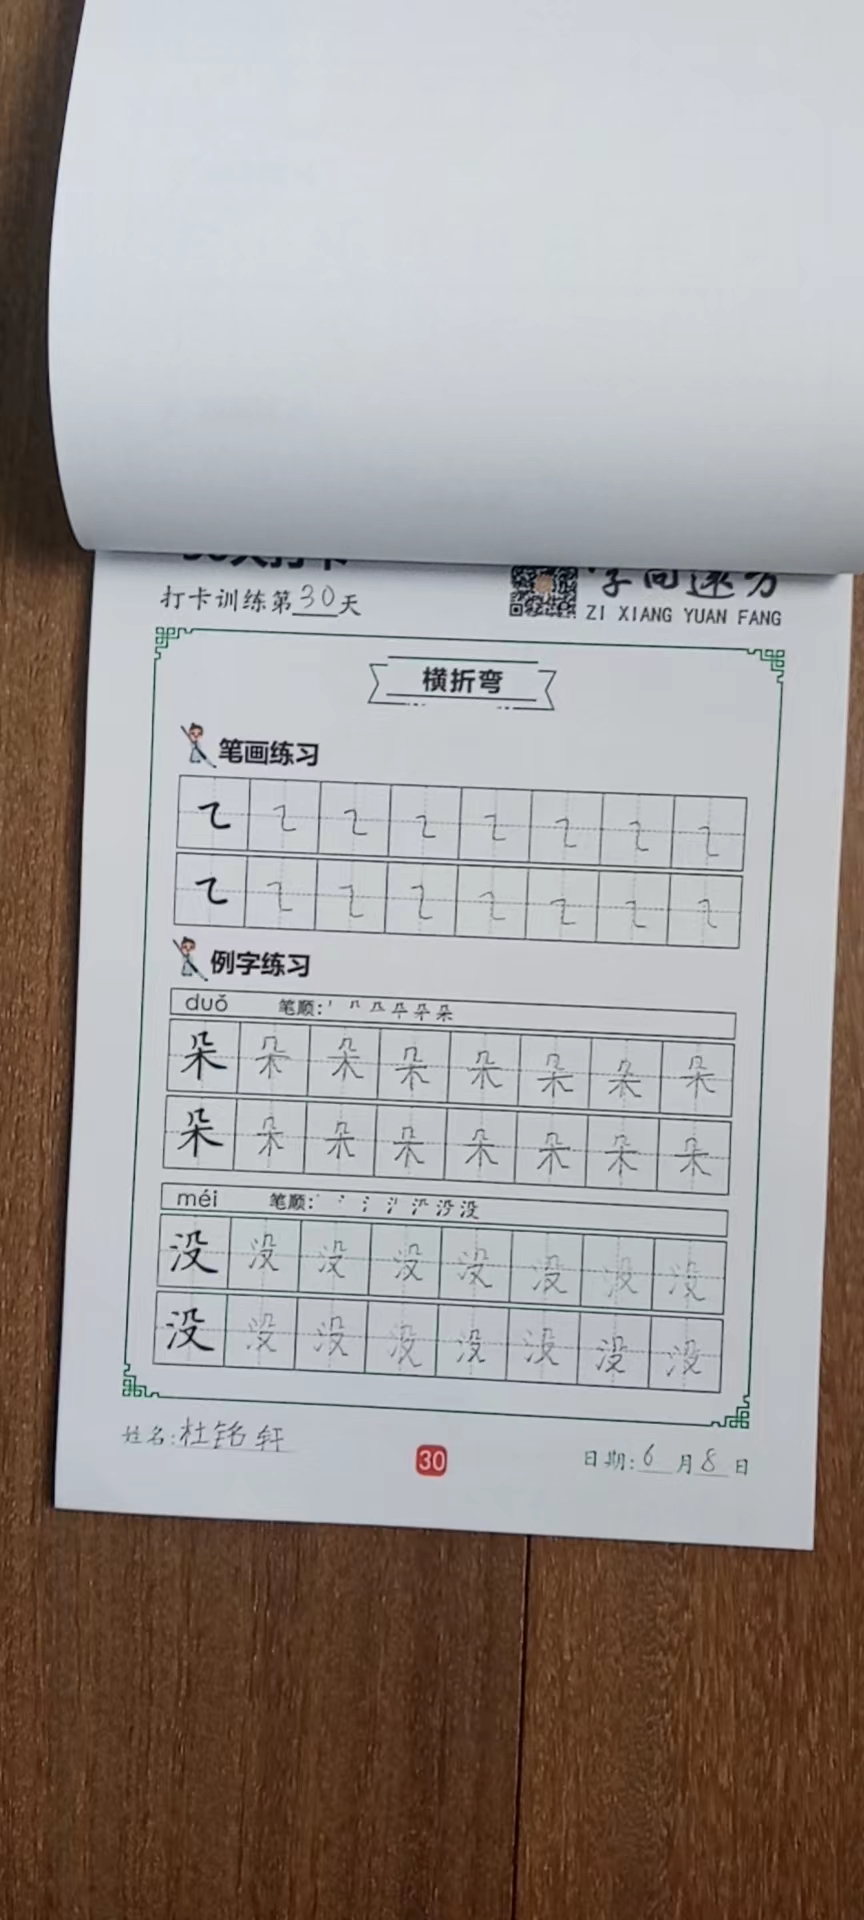 打卡训练第30天
ZI XIANG YUAN FANG
横折弯
笔画练习
㇍ ㇍ ㇍ ㇍ ㇍ ㇍ ㇍ ㇍
㇍ ㇍ ㇍ ㇍ ㇍ ㇍ ㇍ ㇍
例字练习
duǒ 笔顺:
朵 朵 朵 朵 朵 朵 朵 朵
朵 朵 朵 朵 朵 朵 朵 朵
méi 笔顺:
没 没 没 没 没 没 没 没
没 没 没 没 没 没 没 没
姓名:杜铭轩
30
日期:6月8日